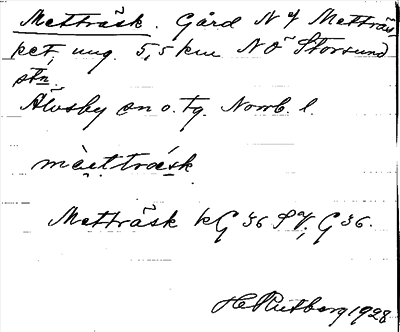 Metträsk. Gård N of Metträs
ket, ung. 5,5 km NO Storsund
stn.
Älvsby sn o. tg. Norrb. l.
Metträsk kG 36 SV; G 36.
H Rutberg 1928